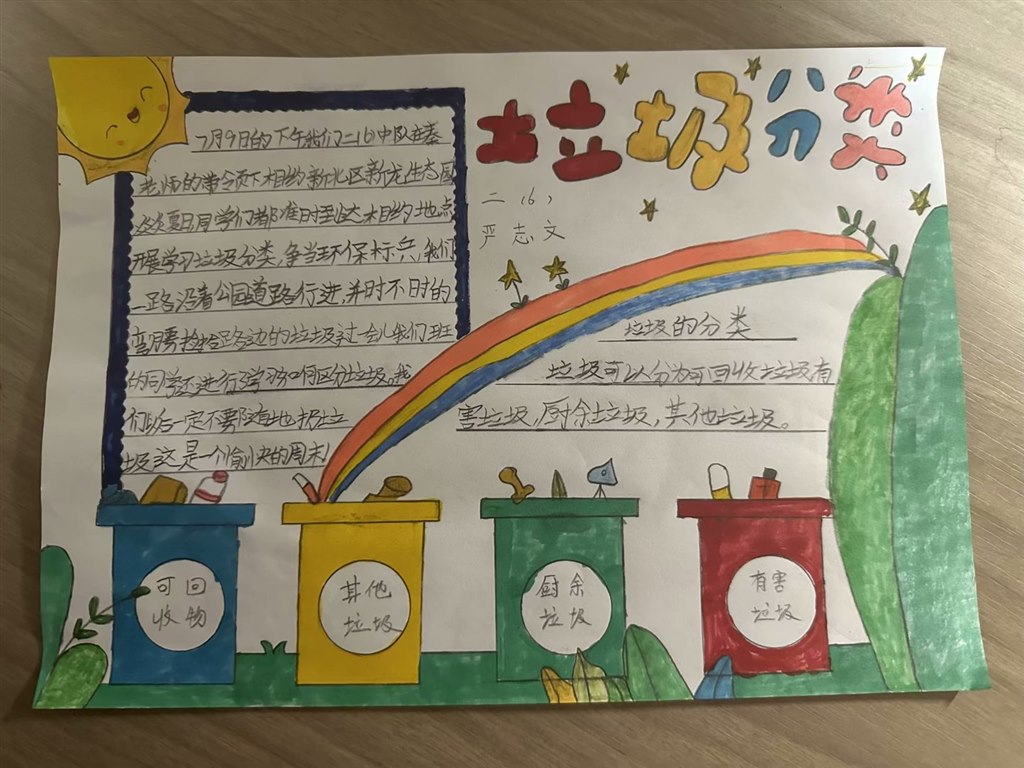 垃圾分类
二16）
严志文
7月9日的下午我们二16中队在秦
老师的带令页下相约新北区新龙生态园
炎炎夏日同学们都准时到达相约地点
开展学习垃圾分类，争当环保标兵，我们
一路沿着公园道路行进，并时不时的
弯腰捡拾路边的垃圾过一会儿我们班
的同学还进行学习如何区分垃圾。我
们以后一定不要随地扔垃
圾这是一个愉快的周末！
垃圾的分类
垃圾可以分为可回收垃圾有
害垃圾，厨余垃圾，其他垃圾。
可回
收物
其他
垃圾
厨余
垃圾
有害
垃圾